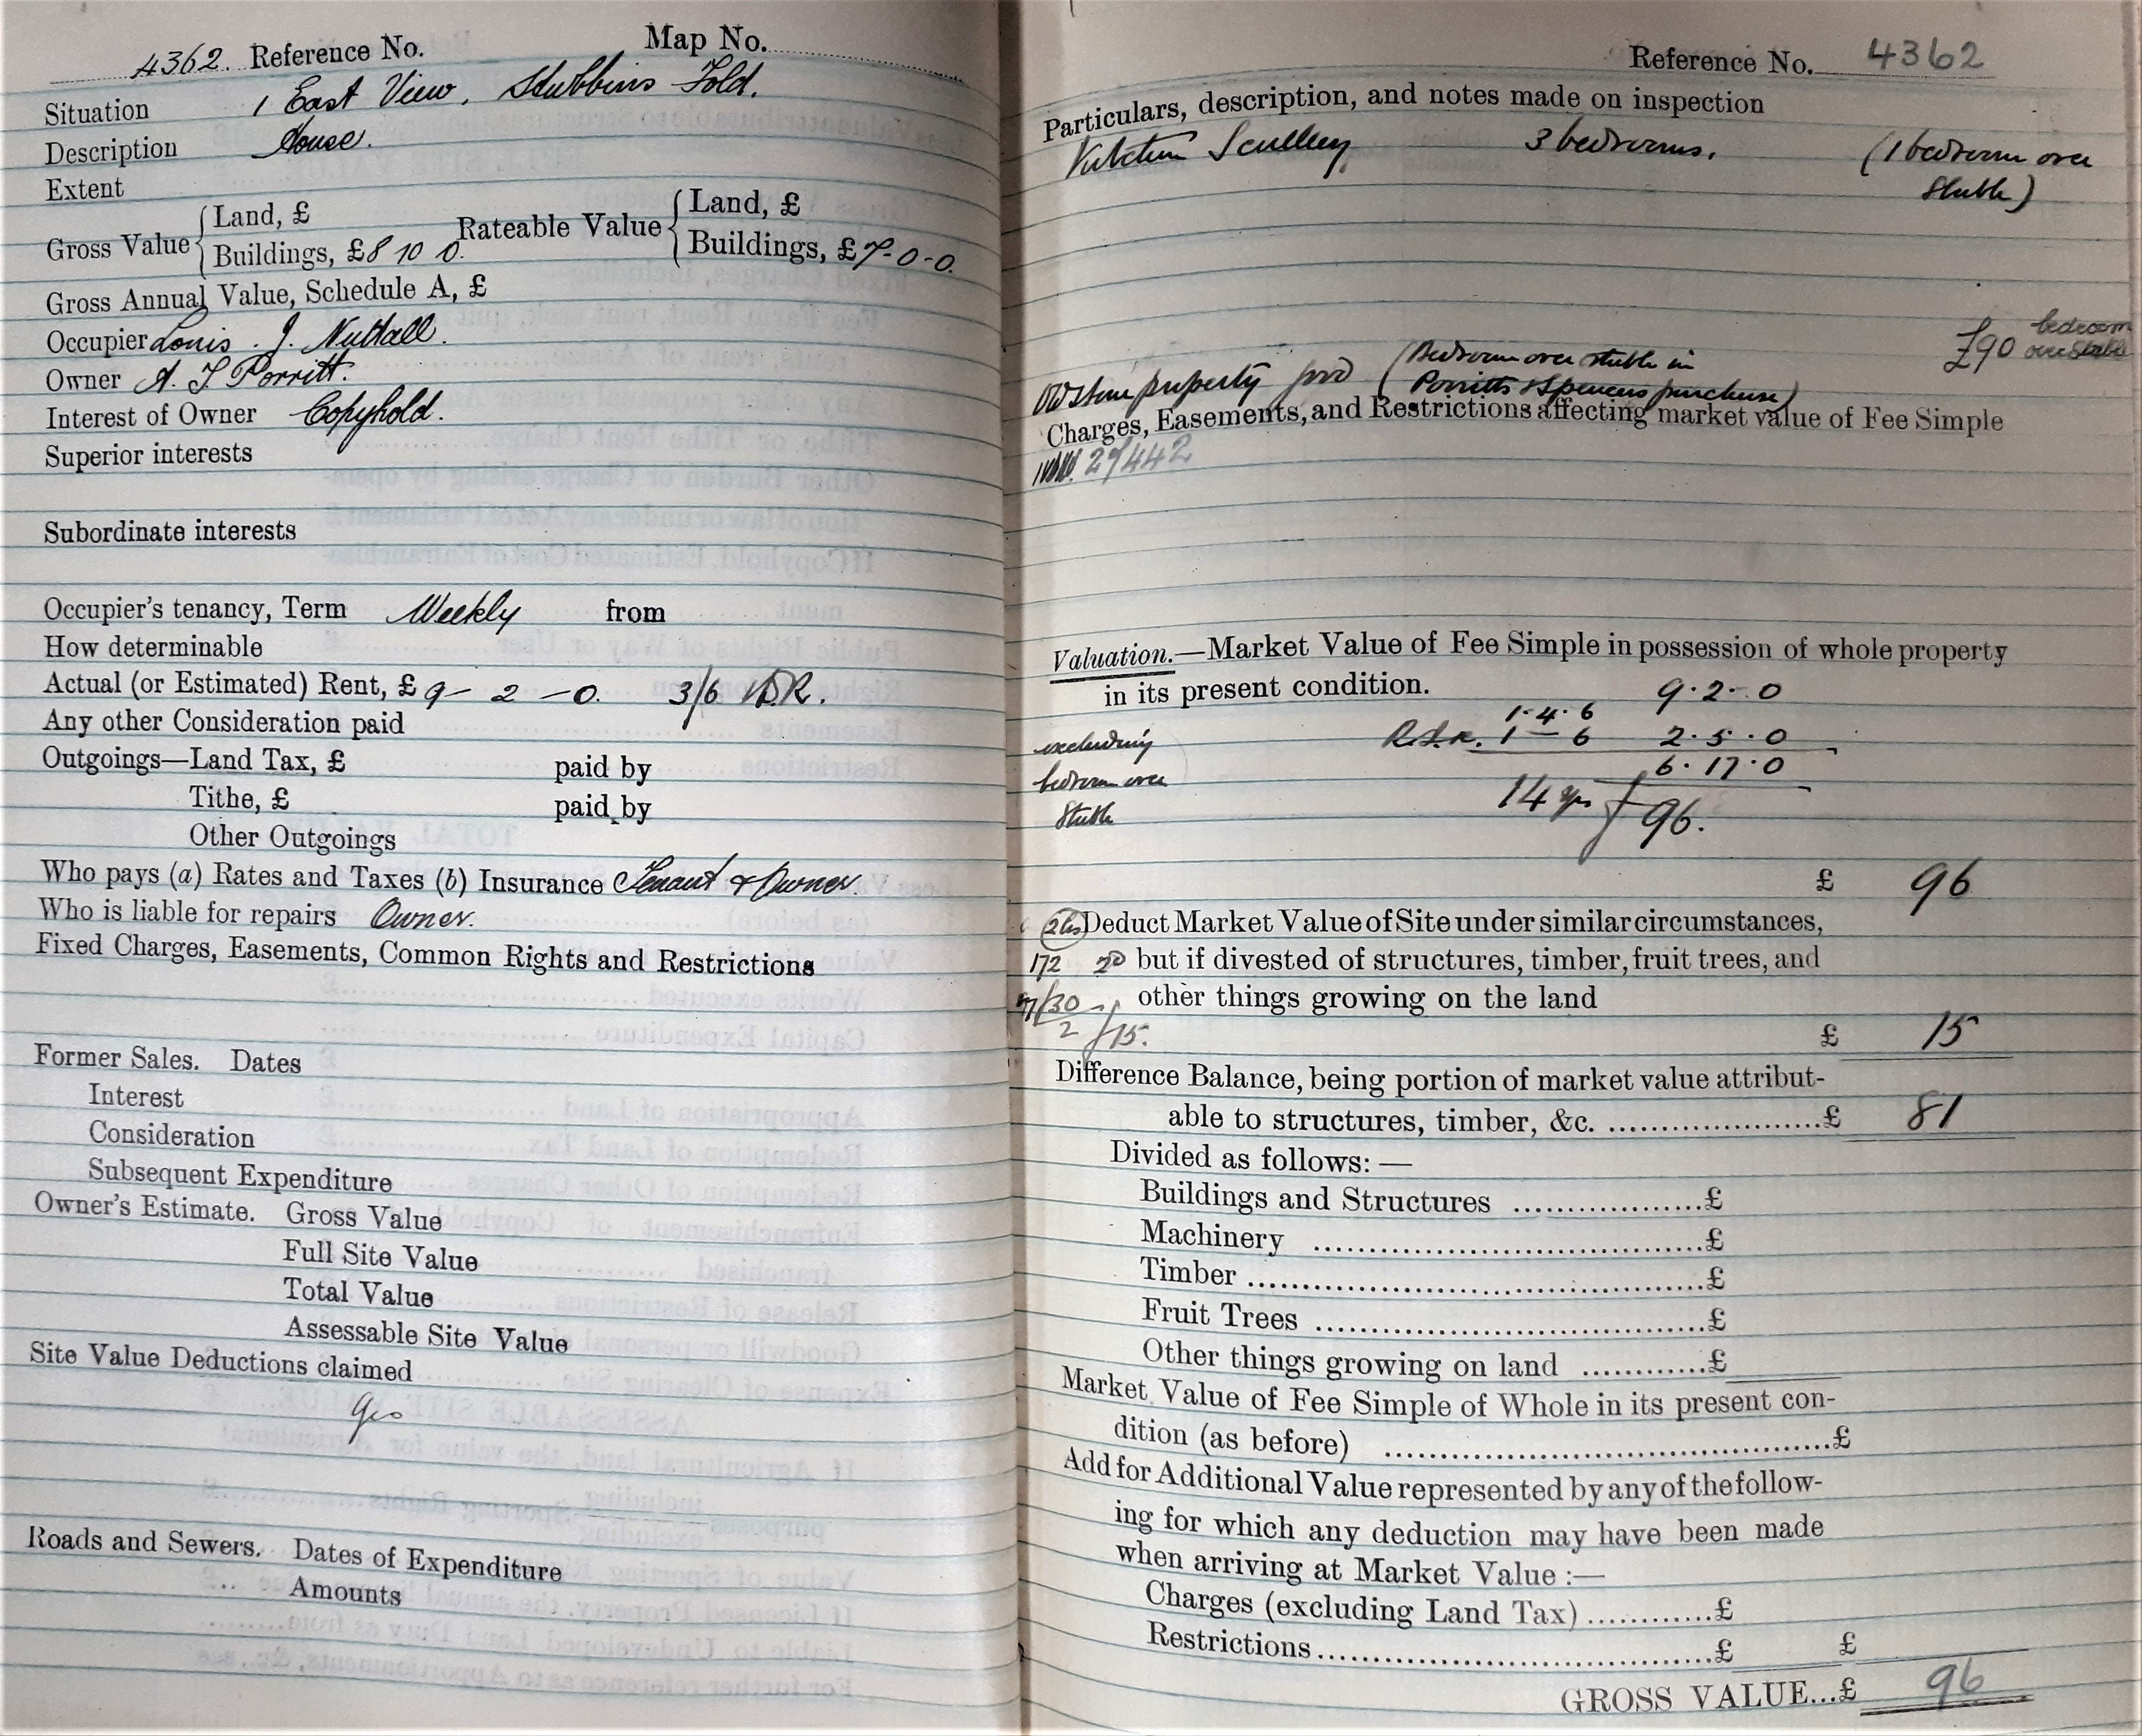 4362. Reference No. Map No.
Situation 1 East View, Stubbins Fold.
Description House.
Extent
Gross Value { Land, £ Rateable Value { Land, £
Buildings, £8 10 0. Buildings, £7-0-0.
Gross Annual Value, Schedule A, £
Occupier Louis. J. Nuttall.
Owner A. T Porritt.
Interest of Owner Copyhold.
Superior interests
Subordinate interests
Occupier's tenancy, Term Weekly from
How determinable
Actual (or Estimated) Rent, £ 9 - 2 - 0. 3/6
Any other Consideration paid
Outgoings—Land Tax, £ paid by
Tithe, £ paid by
Other Outgoings
Who pays (a) Rates and Taxes (b) Insurance Tenant & Owner.
Who is liable for repairs Owner.
Fixed Charges, Easements, Common Rights and Restrictions
Former Sales. Dates
Interest
Consideration
Subsequent Expenditure
Owner's Estimate. Gross Value
Full Site Value
Total Value
Assessable Site Value
Site Value Deductions claimed
Roads and Sewers. Dates of Expenditure
Amounts
Reference No. 4362
Particulars, description, and notes made on inspection
Kitchen Scullery 3 bedrooms. (1 bedroom over
Stable)
£90 bedroom
over Stable
Old stone property good (Bedroom over stable in
Porritts & Spencers purchase)
Charges, Easements, and Restrictions affecting market value of Fee Simple
29442
Valuation.—Market Value of Fee Simple in possession of whole property
in its present condition. 9.2.0
1.4.6
excluding 1 — 6 2.5.0
bedroom over 6.17.0
Stable 14 yrs £96.
£ 96
Deduct Market Value of Site under similar circumstances,
172 but if divested of structures, timber, fruit trees, and
30 other things growing on the land
2 £15.
£ 15
Difference Balance, being portion of market value attribut-
able to structures, timber, &c. ......................£ 81
Divided as follows: —
Buildings and Structures ...................£
Machinery .......................................£
Timber .............................................£
Fruit Trees .......................................£
Other things growing on land ............£
Market Value of Fee Simple of Whole in its present con-
dition (as before) ............................................£
Add for Additional Value represented by any of the follow-
ing for which any deduction may have been made
when arriving at Market Value :—
Charges (excluding Land Tax) ............£
Restrictions..........................................£ £
GROSS VALUE...£ 96